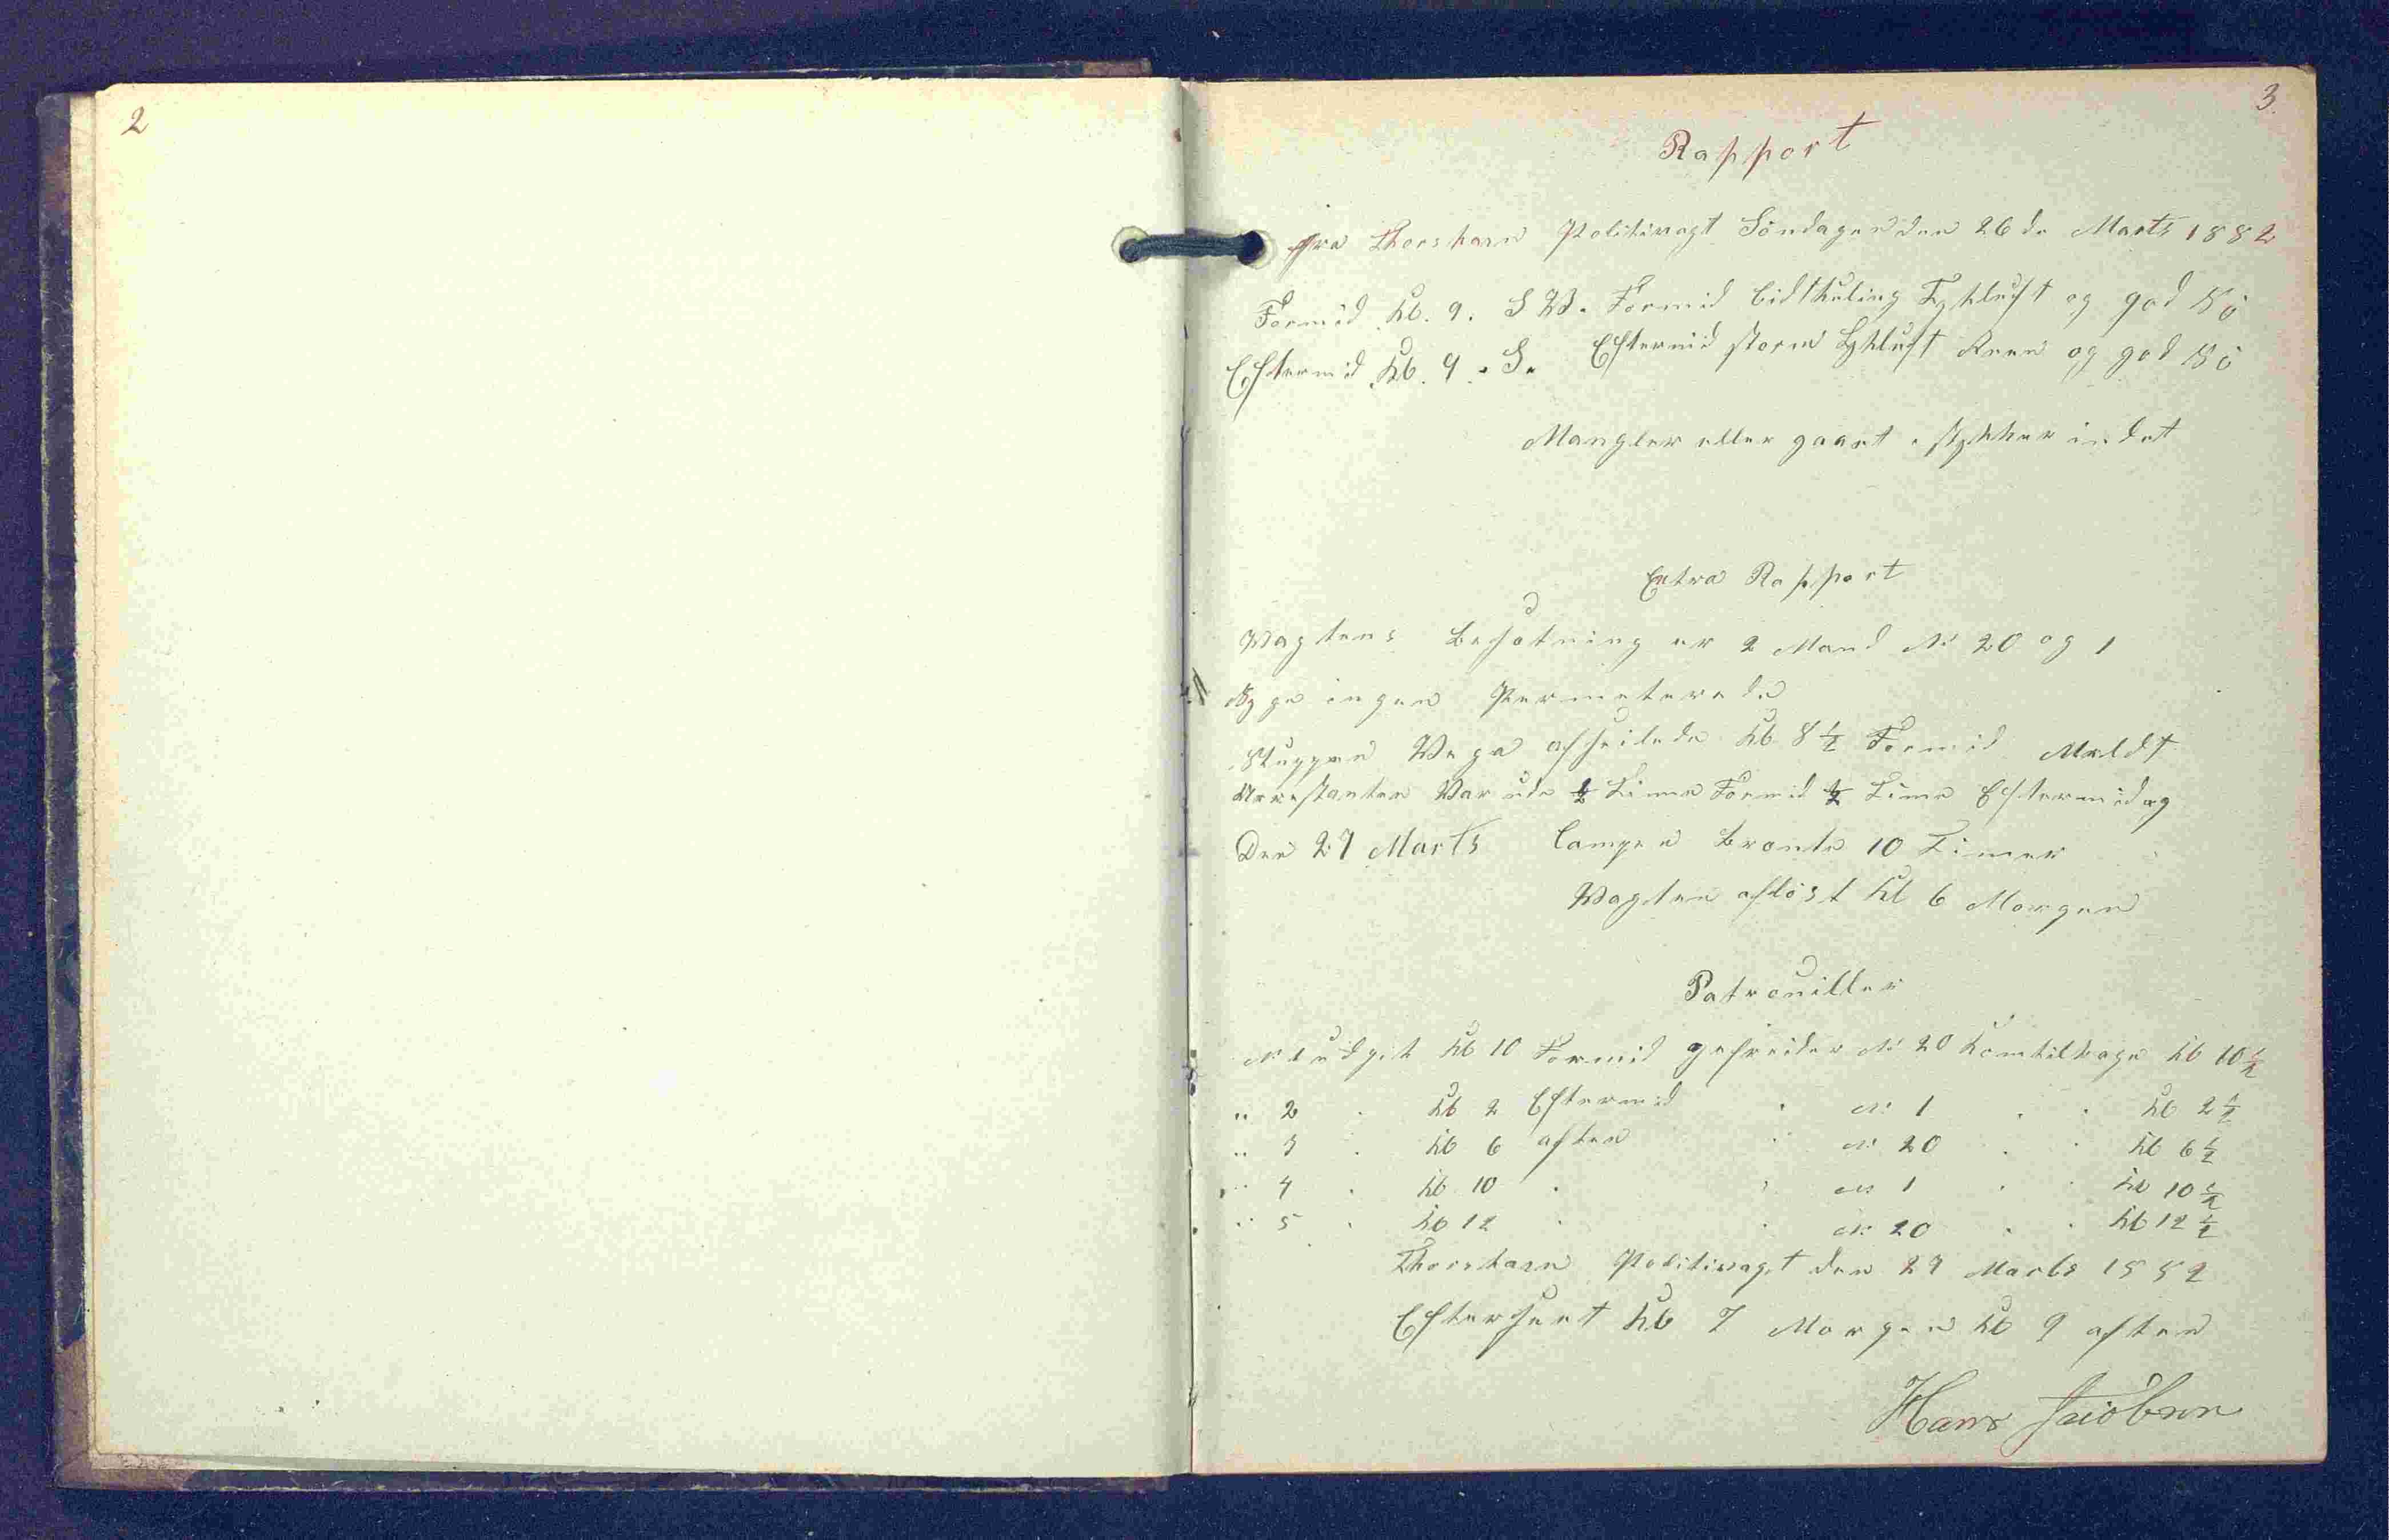 2
3.
Rapport
fra Thorshavn Politivagt Söndagen den 26de Marts 1882
Formid Kl. 9. S V. Formid bidtkuling Tykluft og god Sö
Eftermid Kl. 9. S. Eftermid storm Tykluft Reen og god Sö
Mangler eller gaaet i stykker indet
Extra Rapport
Vagtens besætning er 2 Mand No 20 og 1
Syge ingen Permeterede
Sluppen Vega afseilede Kl 8 1/2 Formid Meldt
Arrestanten Var ude 1/2 Time Formid 1/2 Time Eftermidag
Den 27 Marts Lampen brænte 10 Timer
Vagten aflöst Kl 6 Morgen
Patrouiller
No 1 udgik Kl 10 Formid gefreider No 20 kom tilbage Kl 10 1/2
" 2 " Kl 2 Eftermid " No 1 " " Kl 2 1/2
" 3 " Kl 6 aften " No 20 " " Kl 6 1/2
" 4 " Kl 10 " " No 1 " " Kl 10 1/2
" 5 " Kl 12 " " No 20 " " Kl 12 1/2
Thorshavn Politivagt den 27 Marts 1882
Efterseet Kl 7 Morgen Kl 9 aften
Hans Jacobsen